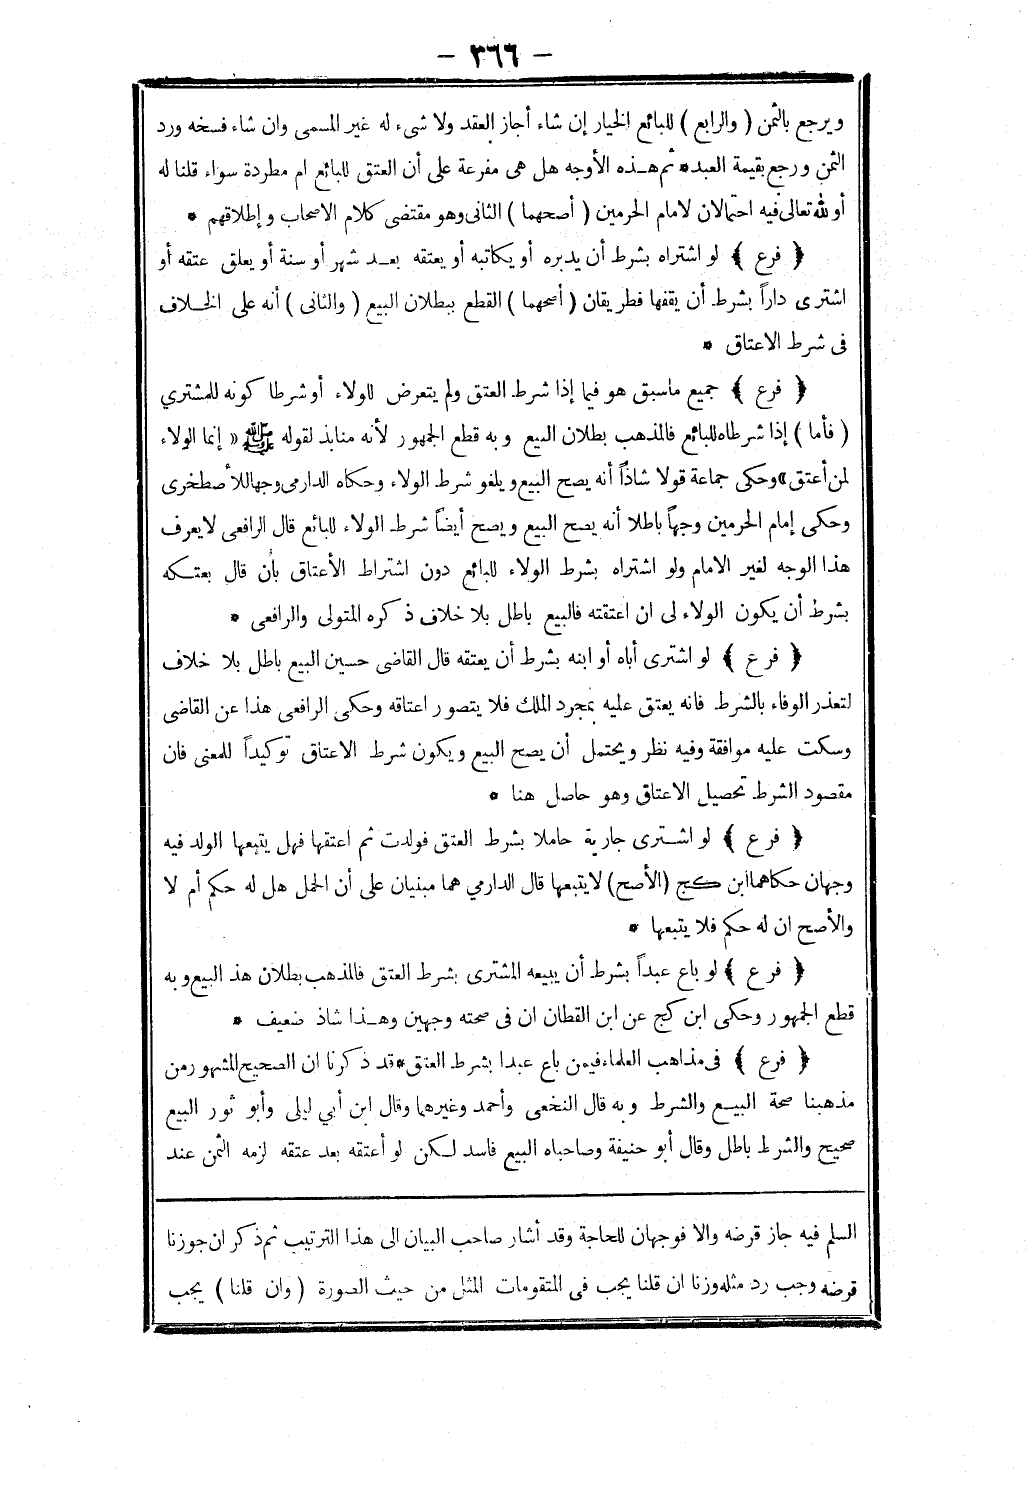 - ٣٦٦ -
ويرجع بالثمن ( والرابع ) للبائع الخيار إن شاء أجاز العقد ولا شىء له غير المسمى وان شاء فسخه ورد
الثمن ورجع بقيمة العبد * ثم هذه الأوجه هل هى مفرعة على أن العتق للبائع ام مطردة سواء قلنا له
أو لله تعالى فيه احتمالان لامام الحرمين ( أصحهما ) الثانى وهو مقتضى كلام الاصحاب وإطلاقهم *
﴿ فرع ﴾ لو اشتراه بشرط أن يدبره أو يكاتبه أو يعتقه بعد شهر أو سنة أو يعلق عتقه أو
اشترى داراً بشرط أن يقفها فطريقان ( أصحهما ) القطع ببطلان البيع ( والثانى ) أنه على الخلاف
فى شرط الاعتاق *
﴿ فرع ﴾ جميع ماسبق هو فيما إذا شرط العتق ولم يتعرض للولاء أو شرطا كونه للمشتري
( فأما ) إذا شرطاه للبائع فالمذهب بطلان البيع وبه قطع الجمهور لأنه منابذ لقوله ﷺ « إنما الولاء
لمن أعتق » وحكى جماعة قولا شاذاً أنه يصح البيع ويلغو شرط الولاء وحكاه الدارمى وجها للأصطخرى
وحكى إمام الحرمين وجهاً باطلا أنه يصح البيع ويصح أيضاً شرط الولاء للبائع قال الرافعى لا يعرف
هذا الوجه لغير الامام ولو اشتراه بشرط الولاء للبائع دون اشتراط الأعتاق بأن قال بعتكه
بشرط أن يكون الولاء لى ان اعتقته فالبيع باطل بلا خلاف ذكره المتولى والرافعى *
﴿ فرع ﴾ لو اشترى أباه أو ابنه بشرط أن يعتقه قال القاضى حسين البيع باطل بلا خلاف
لتعذر الوفاء بالشرط فانه يعتق عليه بمجرد الملك فلا يتصور اعتاقه وحكى الرافعى هذا عن القاضى
وسكت عليه موافقة وفيه نظر ويحتمل أن يصح البيع ويكون شرط الاعتاق توكيداً للمعنى فان
مقصود الشرط تحصيل الاعتاق وهو حاصل هنا *
﴿ فرع ﴾ لو اشترى جارية حاملا بشرط العتق فولدت ثم اعتقها فهل يتبعها الولد فيه
وجهان حكاهما ابن كج (الأصح) لا يتبعها قال الدارمي هما مبنيان على أن الحمل هل له حكم أم لا
والأصح ان له حكم فلا يتبعها *
﴿ فرع ﴾ لو باع عبداً بشرط أن يبيعه المشترى بشرط العتق فالمذهب بطلان هذ البيع وبه
قطع الجمهور وحكى ابن كج عن ابن القطان ان فى صحته وجهين وهذا شاذ ضعيف *
﴿ فرع ﴾ فى مذاهب العلماء فيمن باع عبدا بشرط العتق * قد ذكرنا ان الصحيح المشهور من
مذهبنا صحة البيع والشرط وبه قال النخعى وأحمد وغيرهما وقال ابن أبي ليلى وأبو ثور البيع
صحيح والشرط باطل وقال أبو حنيفة وصاحباه البيع فاسد لكن لو أعتقه بعد عتقه لزمه الثمن عند
السلم فيه جاز قرضه والا فوجهان للحاجة وقد أشار صاحب البيان الى هذا الترتيب ثم ذكر ان جوزنا
قرضه وجب رد مثله وزنا ان قلنا يجب فى المتقومات المثل من حيث الصورة ( وان قلنا ) يجب